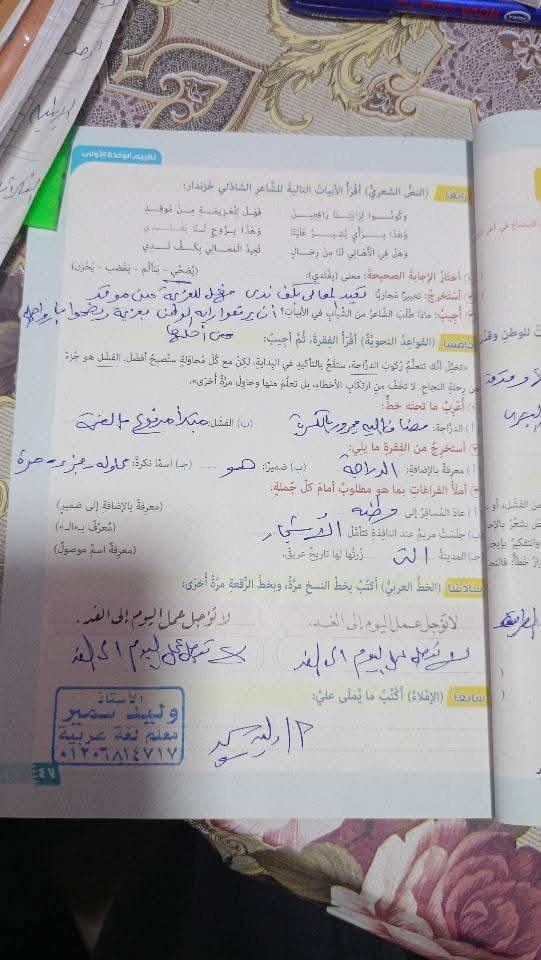 تقييم الوحدة الأولى
رابعًا (النصُّ الشعريُّ) أقرأُ الأبياتَ التاليةَ للشاعرِ الشاذلي خزندار:
وَكُونُوا لِرَايَتِنَا رَافِعِينَ فَهَلْ لِلْعَزِيمَةِ مِنْ مُوقِدِ
وَهَذَا بِرَأْيٍ يُشِيرُ عَلَيْنَا وَهَذَا بِرُوحٍ لَنَا يَفْتَدِي
وَهَلْ فِي الْأَهَالِي لَنَا مِنْ رِجَالٍ تُعِيدُ الْمَعَالِي بِكَفٍّ نَدِي
أختارُ الإجابةَ الصحيحةَ: معنى (يفتدي): (يُضحِّي - يتألَّم - يغضب - يحزن)
أستخرجُ: تعبيرًا مجازيًّا تعيد المعالي بكف ندى فهل للعزيمة من موقد
أجيبُ: ماذا طلبَ الشاعرُ من الشبابِ في الأبياتِ؟ أن يرفعوا راية الوطن بعزيمة ويضحوا بأرواحهم
من أجلها
خامسًا (القواعدُ النحويَّةُ) أقرأُ الفِقرةَ، ثُمَّ أُجيبُ:
«تخيَّلْ أنَّك تتعلَّمُ ركوبَ الدرَّاجةِ، ستقعُ بالتأكيدِ في البدايةِ، لكنْ معَ كلِّ محاولةٍ ستُصبحُ أفضلَ. الفشلُ هو جُزءٌ
مِن رحلةِ النجاحِ. لا تخَفْ من ارتكابِ الأخطاءِ، بل تعلَّمْ منها وحاوِلْ مرَّةً أُخرى».
أُعرِبُ ما تحتَه خطٌّ:
أ) الدرَّاجة: مضاف إليه مجرور بالكسرة (ب) الفشل: مبتدأ مرفوع بالضمة
أستخرجُ من الفِقرةِ ما يلي:
أ) معرفةً بالإضافةِ: الدراجة (ب) ضميرًا: هو (جـ) اسمًا نكرةً: محاولة - جزء - مرة
أملأُ الفراغاتِ بما هو مطلوبٌ أمامَ كلِّ جُملةٍ:
أ) عادَ المسافرُ إلى وطنه (معرفة بالإضافة إلى ضمير)
ب) جلسَتْ مريمُ عندَ النافذةِ تتأمَّلُ الأشجار (مُعرَّف بـ«الـ»)
جـ) المدينةُ التى زُرتُها لها تاريخٌ عريقٌ. (معرفة اسم موصول)
سادسًا (الخطُّ العربيُّ) أكتبُ بخطِّ النسخِ مرَّةً، وبخطِّ الرُّقعةِ مرَّةً أُخرى:
لا تؤجل عمل اليوم إلى الغد. لا تؤجل عمل اليوم إلى الغد.
لا تؤجل عمل اليوم الى الغد لا تؤجل عمل اليوم الى الغد
سابعًا (الإملاءُ) أكتبُ ما يُملَى عليَّ:
الأستاذ
وليد سمير
معلم لغة عربية
٠١٢٠٦٨١٤٧١٧
أ/ وليد سمير
٤٧